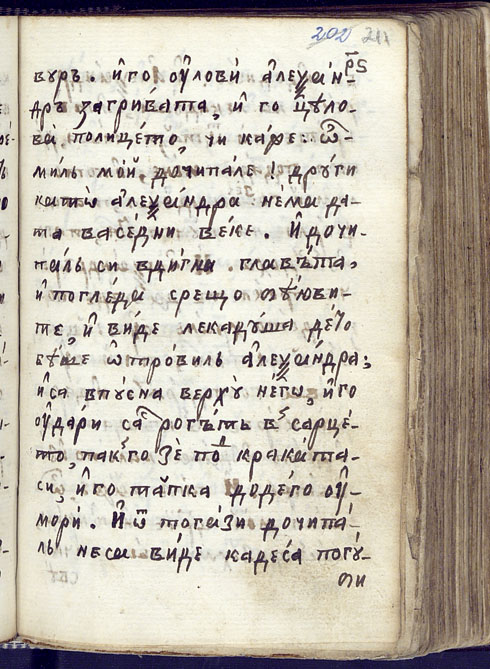 202 211
р҃ѕ
вуръ. и҆ го ѹ҆лови́ а҆леѯа́н-
дръ загри́вата, и҆ го цѹ́ло-
ва̀ поли́цето, чи ка́же: ѽ
ми́ль мо́й, дочипа́ле! дру́ги
като̀ а҆леѯа́ндра не́ма да-
та васе́дни ве́ке. И҆ дочи-
па́ль си вди́гна главъ́та,
и҆ погле́да срещо лю́бови-
те, и҆ ви́де лекаду́ша де́то
бе́ше ѿтро́виль а҆леѯа́ндра;
и҆са впу́сна верху̀ не́гѡ, и҆го
ѹ҆да́ри са рогъ́тъ въ сарце́-
то, пак го зѐ под крака́та-
си, и҆го та́пка додего ѹ҆-
мори̂. И҆ ѿ тога́зи дочипа́-
ль неса ви́де кадеса погу́-
би